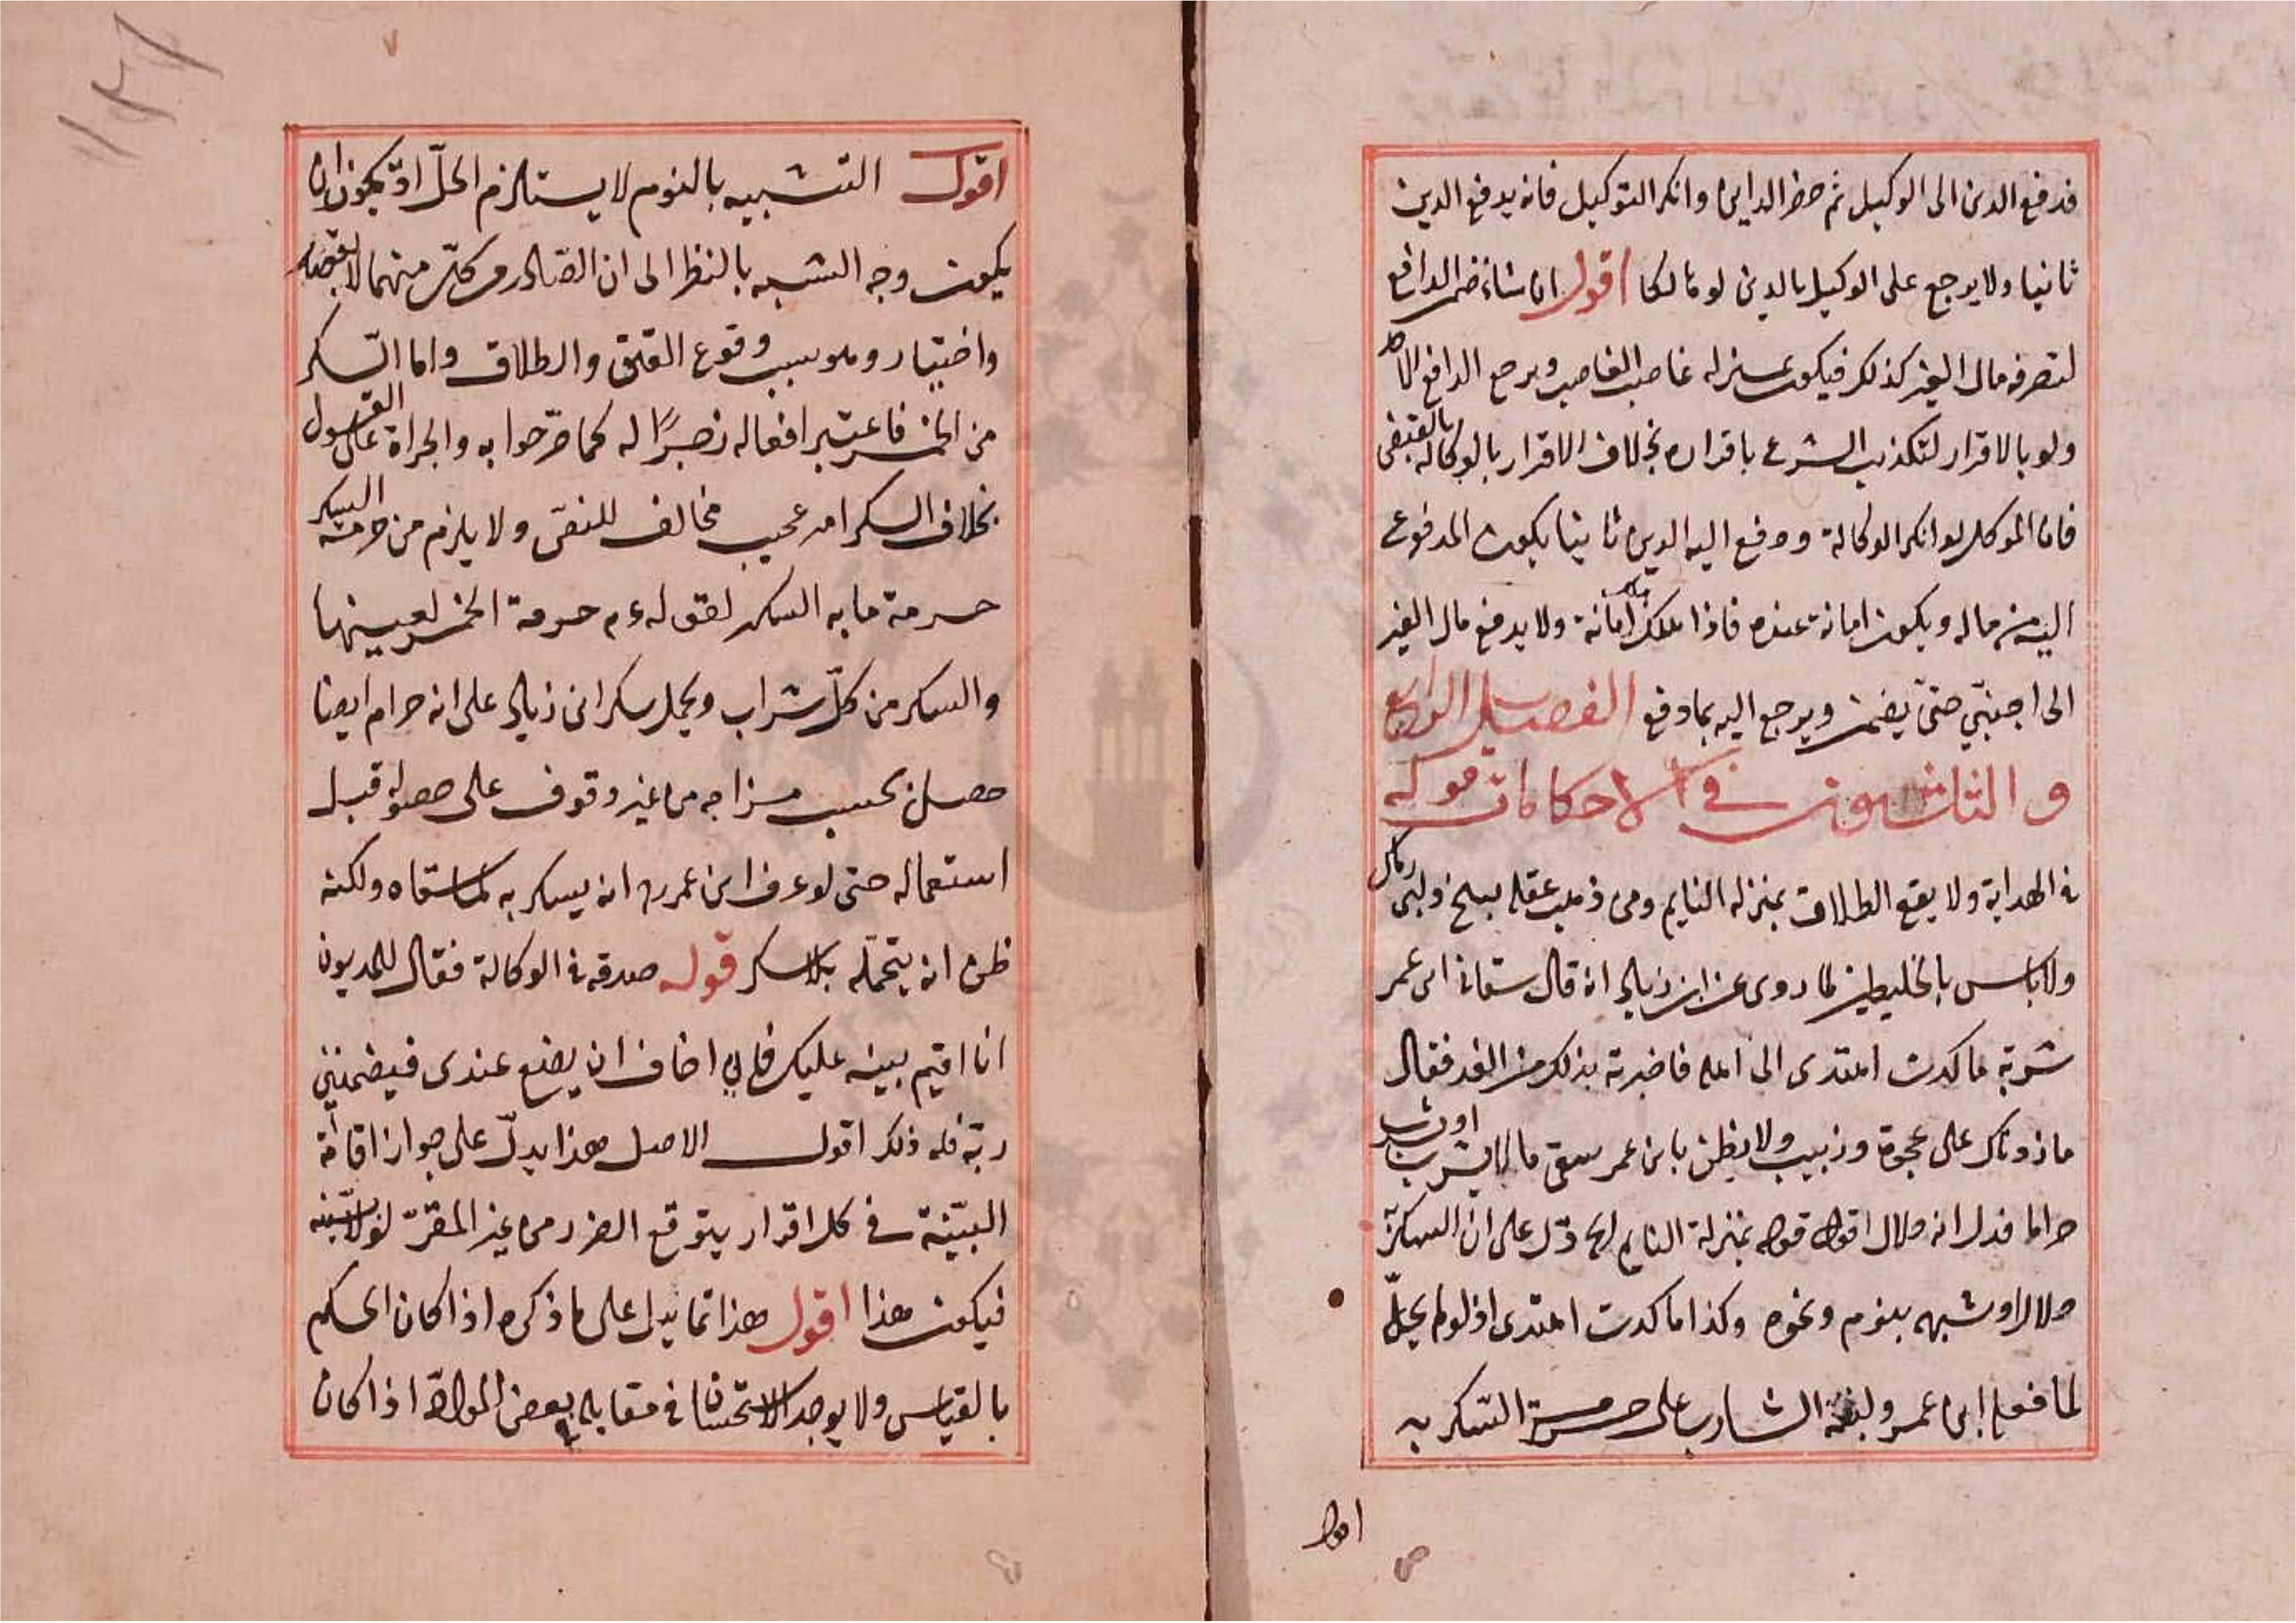 فدفع الدين الى الوكيل ثم حضر الداين وانكر التوكيل فانه يدفع الدين
ثانيا ولا يرجع على الوكيل بالدين لو هالكا اقول ان شاء ضمن الدافع
لتصرفه مال الغير كذلك فيكون بمنزله غاصب الغاصب ويرجع الدافع
ولو بالاقرار لتكذيب الشرع باقراره بخلاف الاقرار بالوكاله بالقبض
فان الموكل لو انكر الوكالة ودفع اليه الدين ثانيا يكون المدفوع
اليه من ماله ويكون امانة عنده فاذا هلك هلك امانة ولا يدفع مال الغير
الى اجنبي حتى يضمن ويرجع اليه بما دفع الفصل الرابع
و الثلاثون في الاحكامات قوله
في الهداية ولا يقع الطلاق بمنزله النايم ومن ذهب عقله ببنج ولبن رماك
ولا باس بالخليطين لما روى عن ابن زياد انه قال سقاني ابن عمر
شربة ما كدت اهتدى الى اهله فاخبرته بذلك من الغد فقال
ما زدناك على عجوة وزبيب ولا يظن بابن عمر سقى ما لا يشرب او يشرب
حراما فدل انه حلال اقول قوله بمنزلة النايم الخ دل على ان السكر
حلال او شبهه بنوم ونحوه وكذا ما كدت اهتدى اذ لو لم يحل
لما فعله ابن عمر ولنبه الشارب على حرمة السكر به
اقول
اقول التشبيه بالنوم لا يستلزم الحل اذ يجوز ان
يكون وجه الشبه بالنظر الى ان الصادر من كل منهما لا بقصد
واختيار وهو سبب وقوع العتق والطلاق واما السكر
من الخمر فاعتبر افعاله زجرا له كما صرحوا به والجراة على القول
بخلاف السكر امر عجيب مخالف للنص ولا يلزم من حرمة السكر
حرمة ما به السكر لقوله عم حرمة الخمر لعينها
والسكر من كل شراب ويحمل سكر ابن زياد على انه حرام ايضا
حصل بحسب مزاجه من غير وقوف على حصوله قبل
استعماله حتى لو عرف ابن عمر رض انه يسكر به لما سقاه ولكنه
ظن انه يتحمله بلا سكر قوله صدقه في الوكالة فقال للمديون
انا اقيم بينة عليك فاني اخاف ان يضيع عندى فيضمنني
ربه فله ذلك اقول الاصل هذا يدل على جواز اقامة
البينة في كل اقرار يتوقع الضرر من غير المقر لولا البينة
فيكون هذا اقول هذا انما يدل على ما ذكره اذا كان الحكم
بالقياس ولا يوجد الاستحسان في مقابله بعض المواد اذا كان